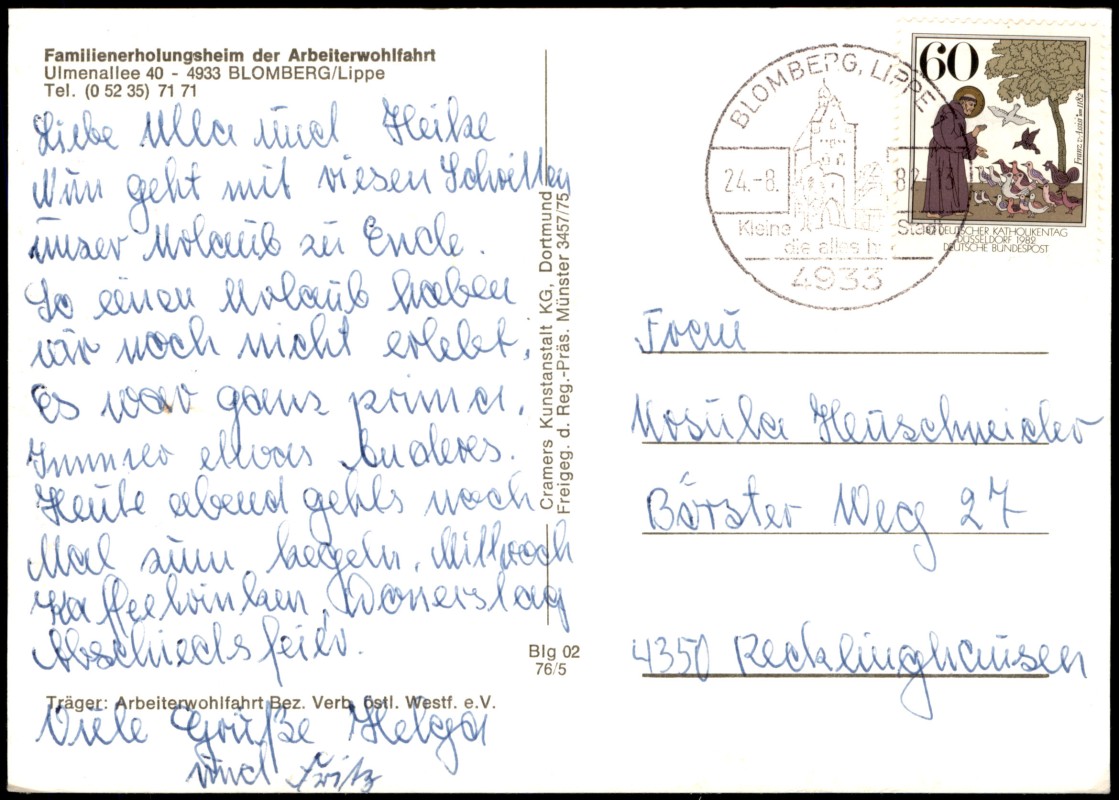 Familienerholungsheim der Arbeiterwohlfahrt
Ulmenallee 40 - 4933 BLOMBERG/Lippe
Tel. (0 52 35) 71 71
Liebe Ulla und Heike
Nun geht mit riesen Schritten
unser Urlaub zu Ende.
So einen Urlaub haben
wir noch nicht erlebt.
Es war ganz prima.
Immer etwas Anderes.
Heute abend gehts noch
Mal zum kegeln. Mittwoch
Kaffeetrinken, Donerstag
Abschiedsfeier.
Träger: Arbeiterwohlfahrt Bez. Verb. östl. Westf. e.V.
Viele Grüße Helga
und Fritz
Cramers Kunstanstalt KG, Dortmund
Freigeg. d. Reg.-Präs. Münster 3457/75
Blg 02
76/5
BLOMBERG, LIPPE
24.-8.
82-13
Kleine Stadt
die alles h
4933
60
Franz v. Assisi m 1182
87. DEUTSCHER KATHOLIKENTAG
DÜSSELDORF 1982
DEUTSCHE BUNDESPOST
Frau
Ursula Heuschneider
Börster Weg 27
4350 Recklinghausen